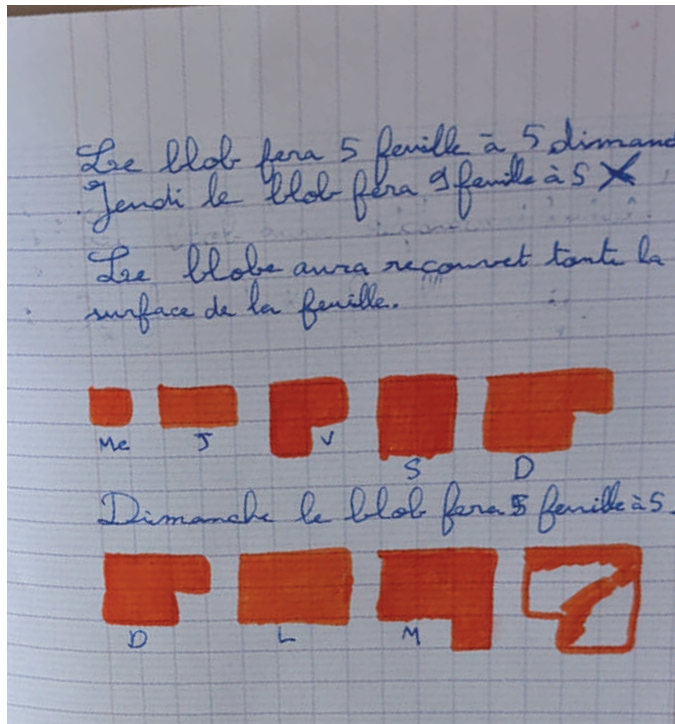 Le blob fera 5 feuille à 5 dimand
Jeudi le blob fera 9 feuille à 5 X
Le blobe aura recouvet toute la
surface de la feuille.
Me J V S D
Dimanche le blob fera 5 feuille à 5.
D L M